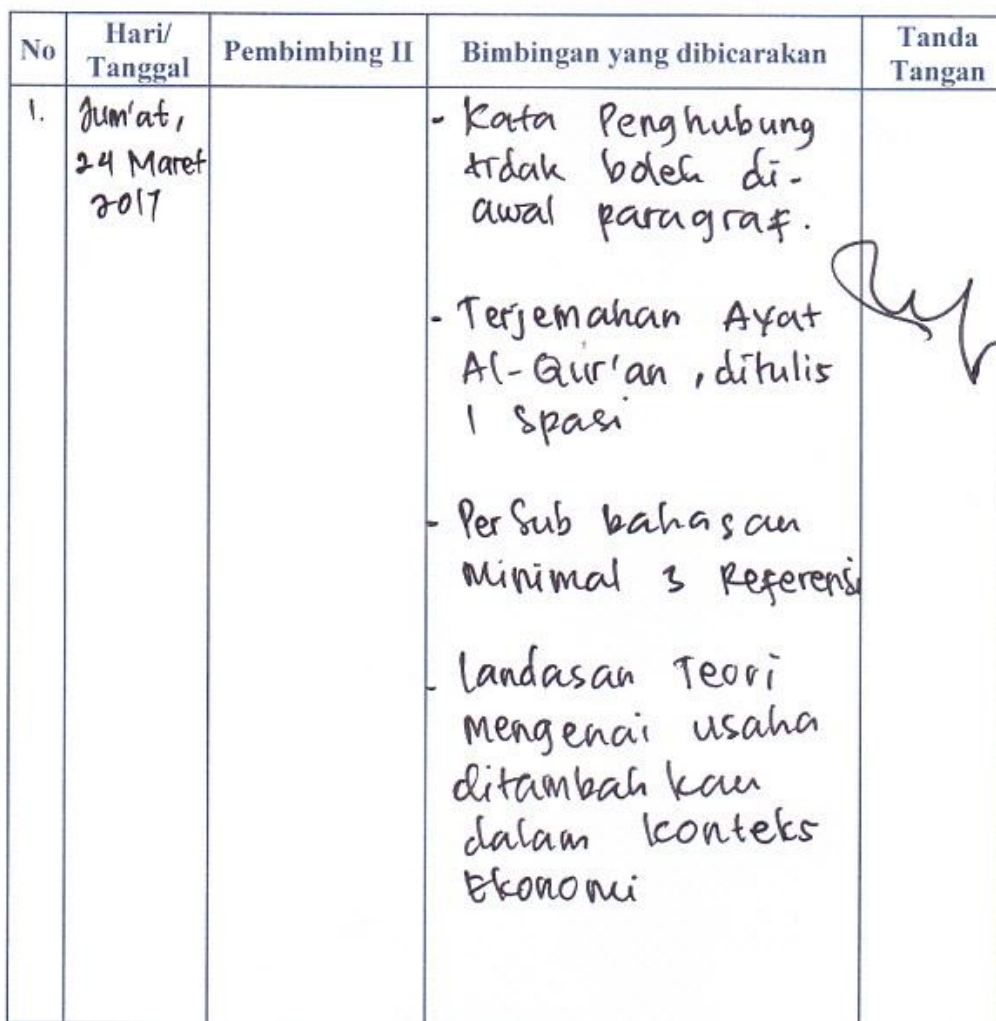 No
Hari/
Tanggal
Pembimbing II
Bimbingan yang dibicarakan
Tanda
Tangan
1.
Jum'at,
24 Maret
2017
- Kata Penghubung
tidak boleh di-
awal paragraf.
- Terjemahan Ayat
Al-Qur'an, ditulis
1 spasi
- Per Sub bahasan
Minimal 3 Referensi
- Landasan Teori
Mengenai usaha
ditambah kan
dalam konteks
Ekonomi